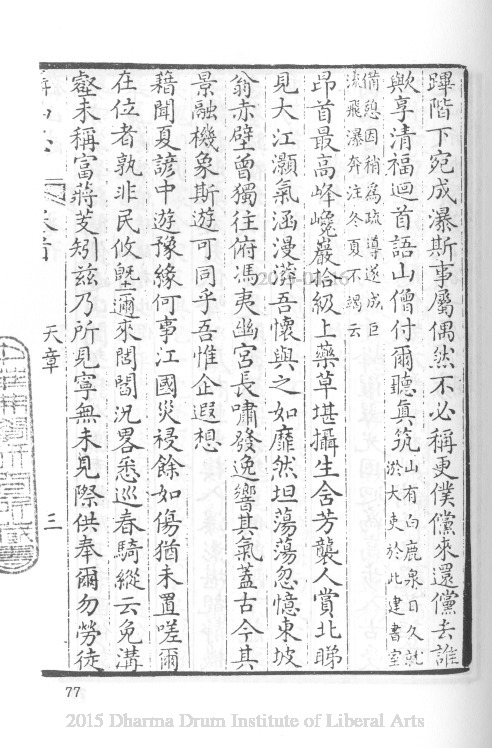 蹕階下宛成瀑斯事屬偶然不必稱更僕儻來還儻去誰
歟享清福迴首語山僧付爾聽真筑山有白鹿泉日久就淤大吏於此建書室
備憩因稍為疏導遂成巨流飛瀑奔注冬夏不竭云
昂首最高峰巉巖拾級上藥草堪攝生含芳襲人賞北睇
見大江灝氣涵漫漭吾懷與之如靡然坦蕩蕩忽憶東坡
翁赤壁曾獨往俯馮夷幽宮長嘯發逸響其氣蓋古今其
景融機象斯遊可同乎吾惟企遐想
藉聞夏諺中遊豫緣何事江國災祲餘如傷猶未置嗟爾
在位者孰非民攸墍邇來閭閻況畧悉巡春騎縱云免溝
壑未稱富蔣芰矧茲乃所見寧無未見際供奉爾勿勞徒
卷首
天章
三
77
2015 Dharma Drum Institute of Liberal Arts